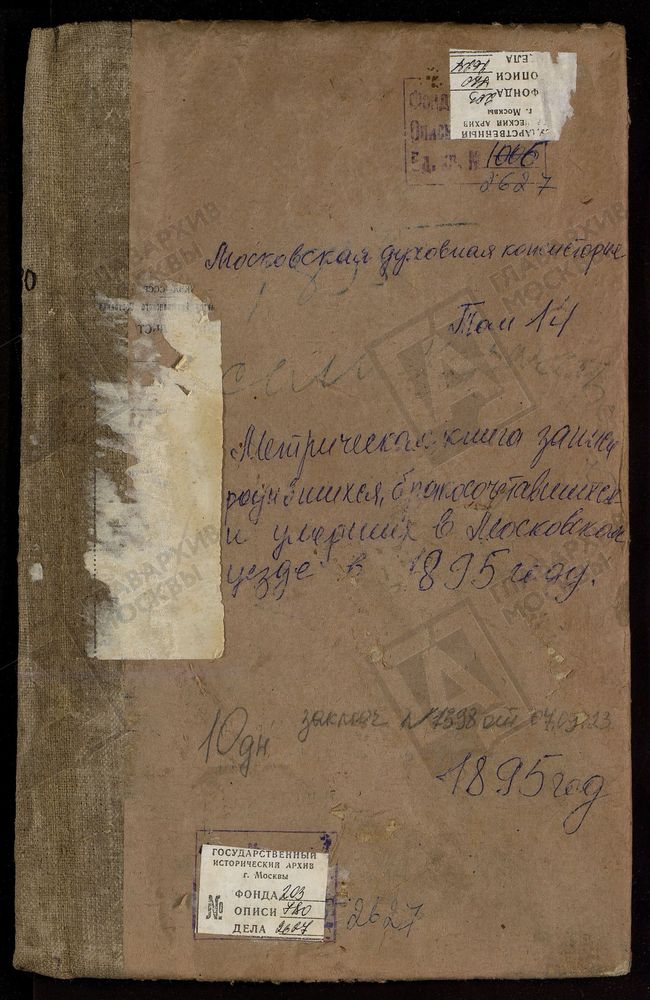 ДЕЛА 2627
ОПИСИ 780
ФОНДА 203
г. Москвы
ЧЕСКИЙ АРХИВ
ДАРСТВЕННЫЙ
Фонд
Опись
Ед. хр. № 1006
2627
Московская духовная консистория
Том 14
Метрическая книга записи
родившихся, бракосочетавшихся
и умерших в Московском
уезде в 1895 году.
10 дн
№ 1398 от 04.09.23
1895 год
ГОСУДАРСТВЕННЫЙ
ИСТОРИЧЕСКИЙ АРХИВ
г. Москвы
№
ФОНДА 203
ОПИСИ 780
ДЕЛА 2627
2627
ГЛАВАРХИВ
МОСКВЫ